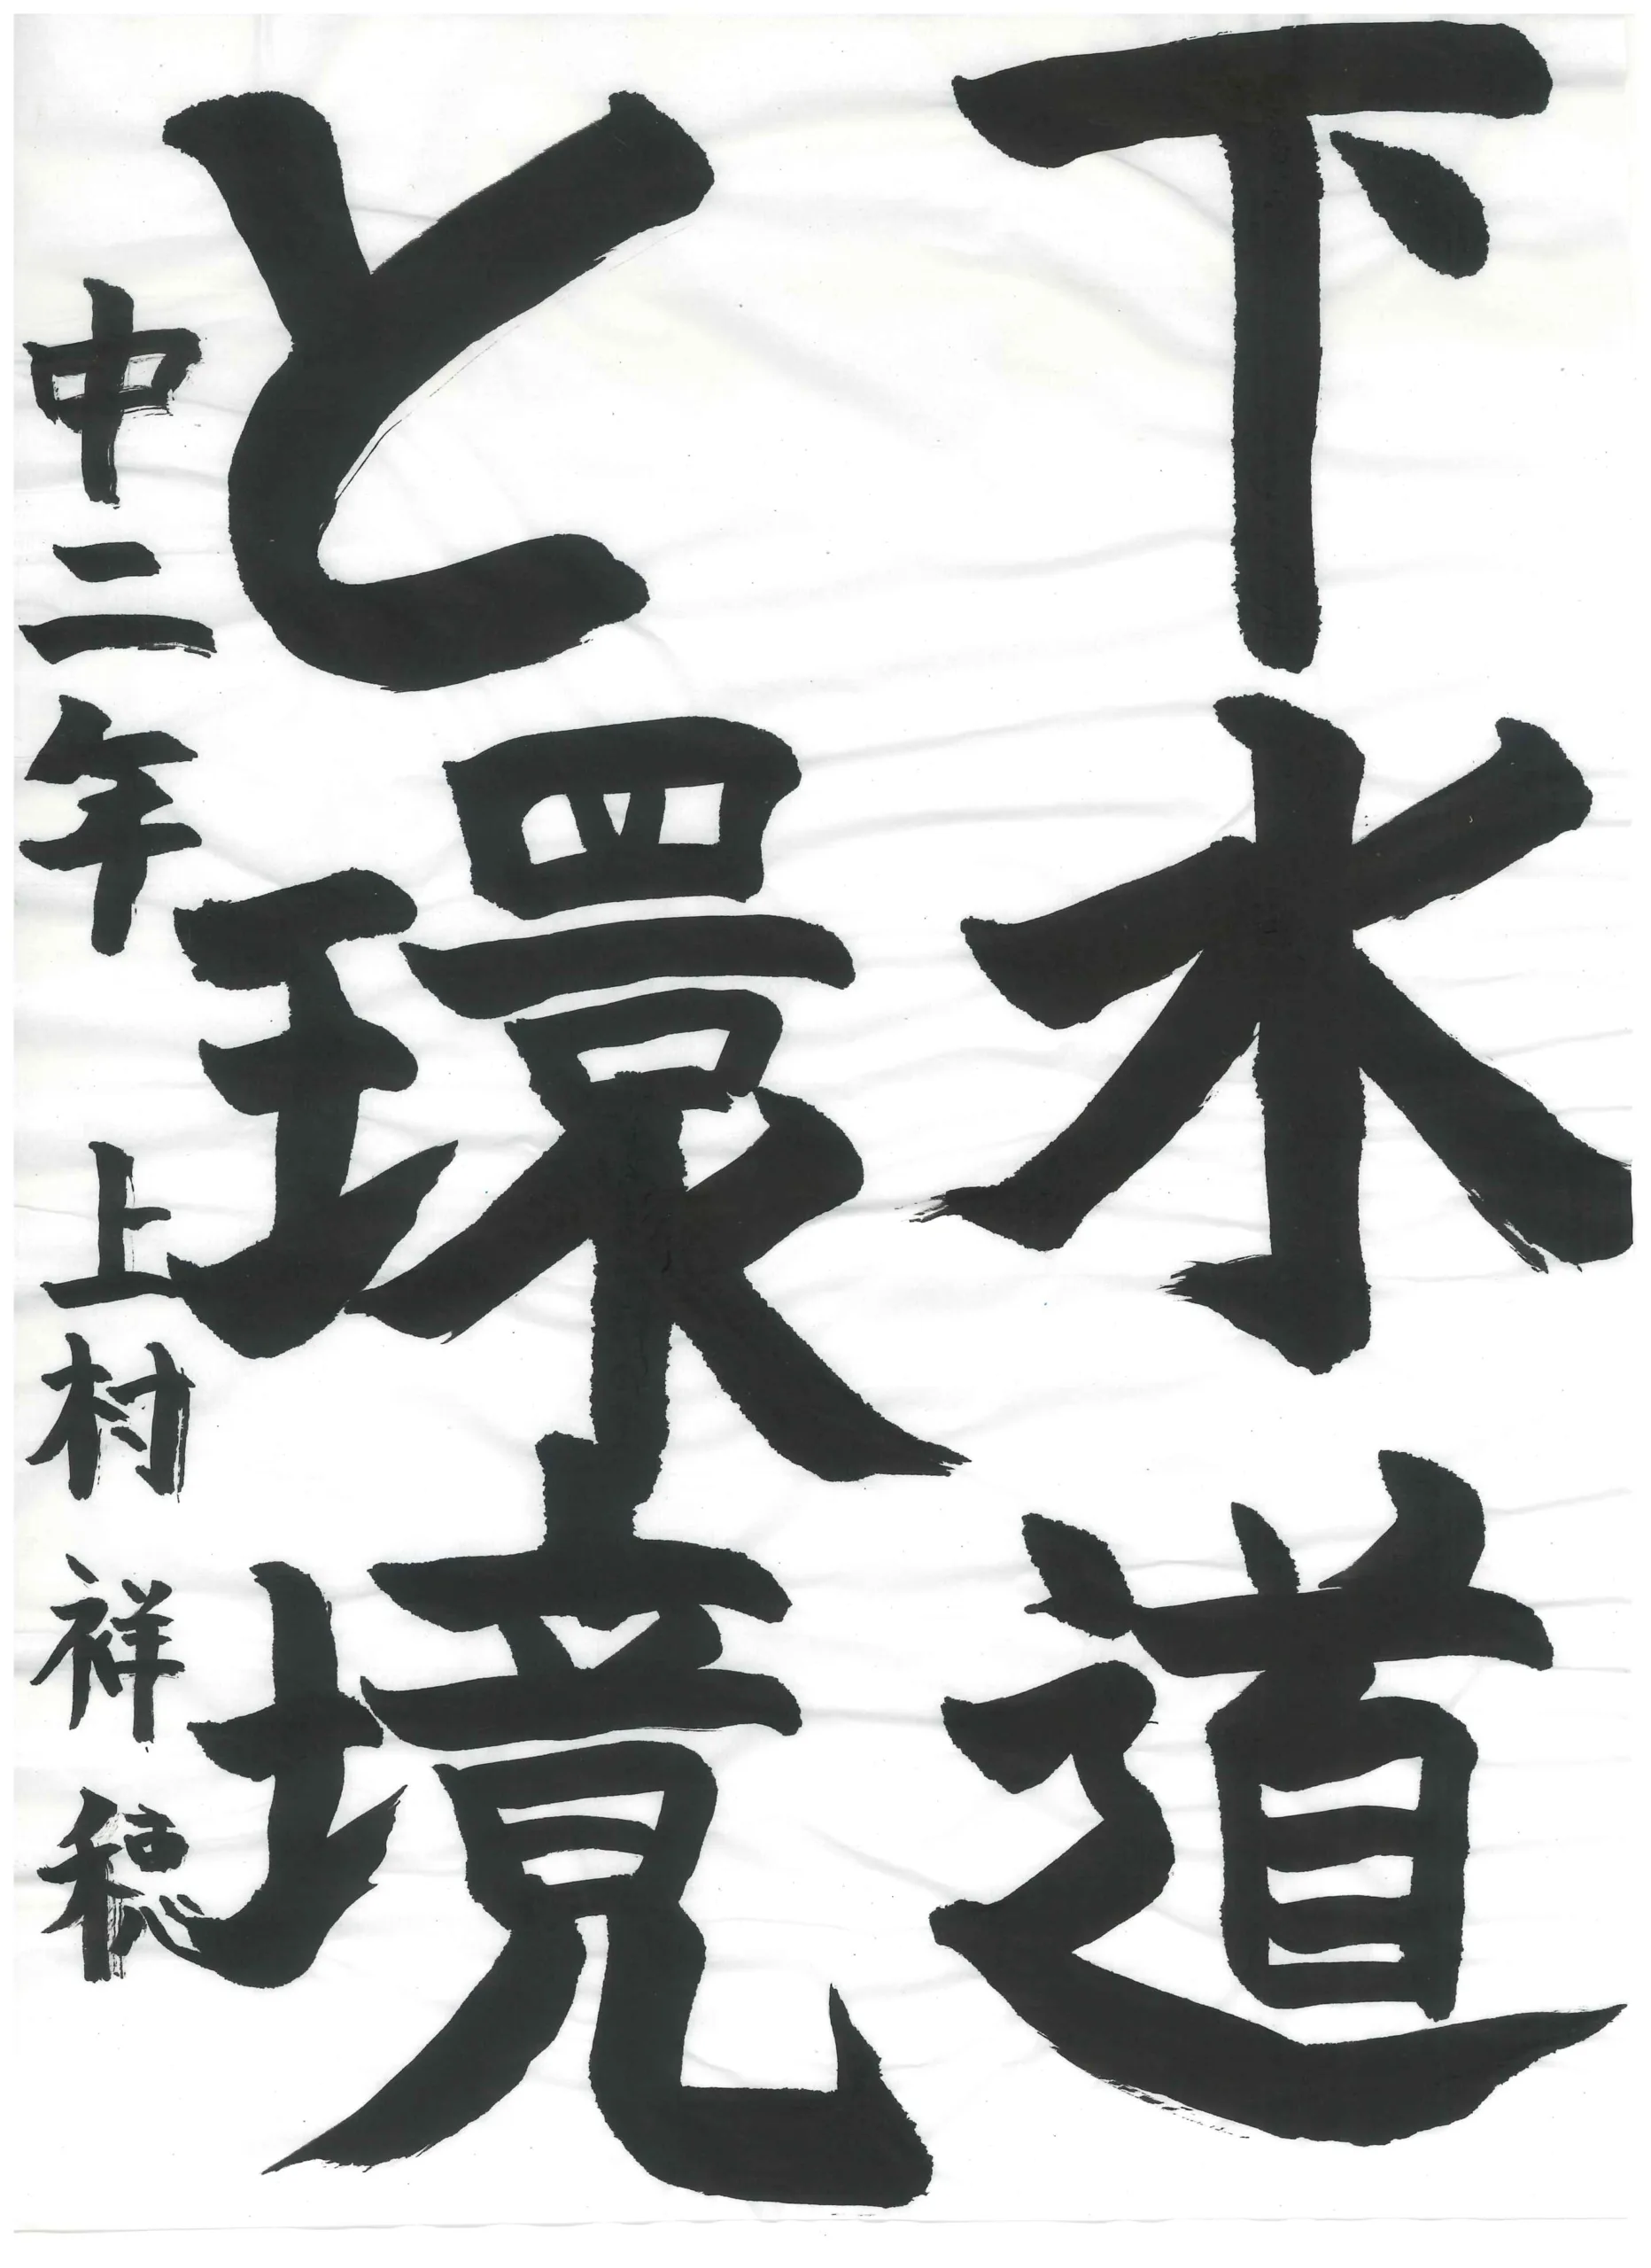 下水道
と環境
中二年 上村祥穂